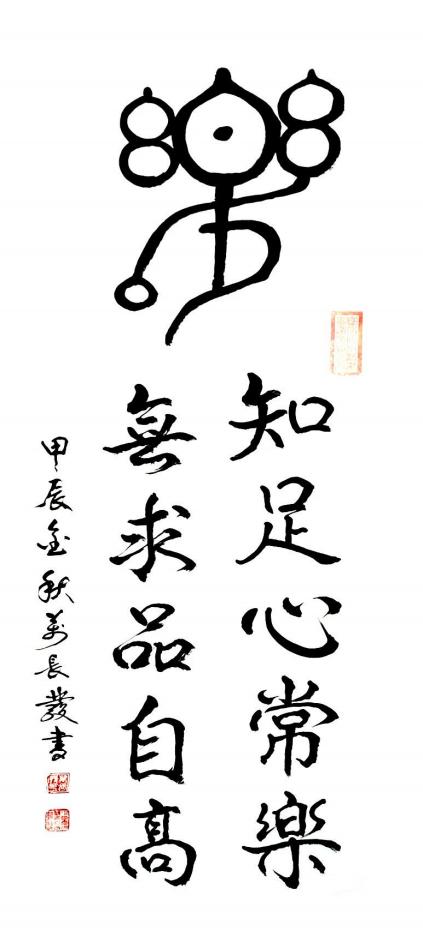 樂
知足心常樂
無求品自高
甲辰金秋萬長發書